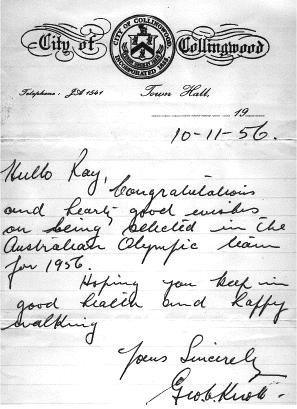 City of Collingwood
CITY OF COLLINGWOOD.
INCORPORATED
Telephone: JA 1541
Town Hall,
19
10-11-56.
Hullo Ray,
Congratulations
and hearty good wishes
on being selected in the
Australian Olympic team
for 1956.
Hoping you keep in
good health and happy
walking
Yours Sincerely
Geo. Knott.